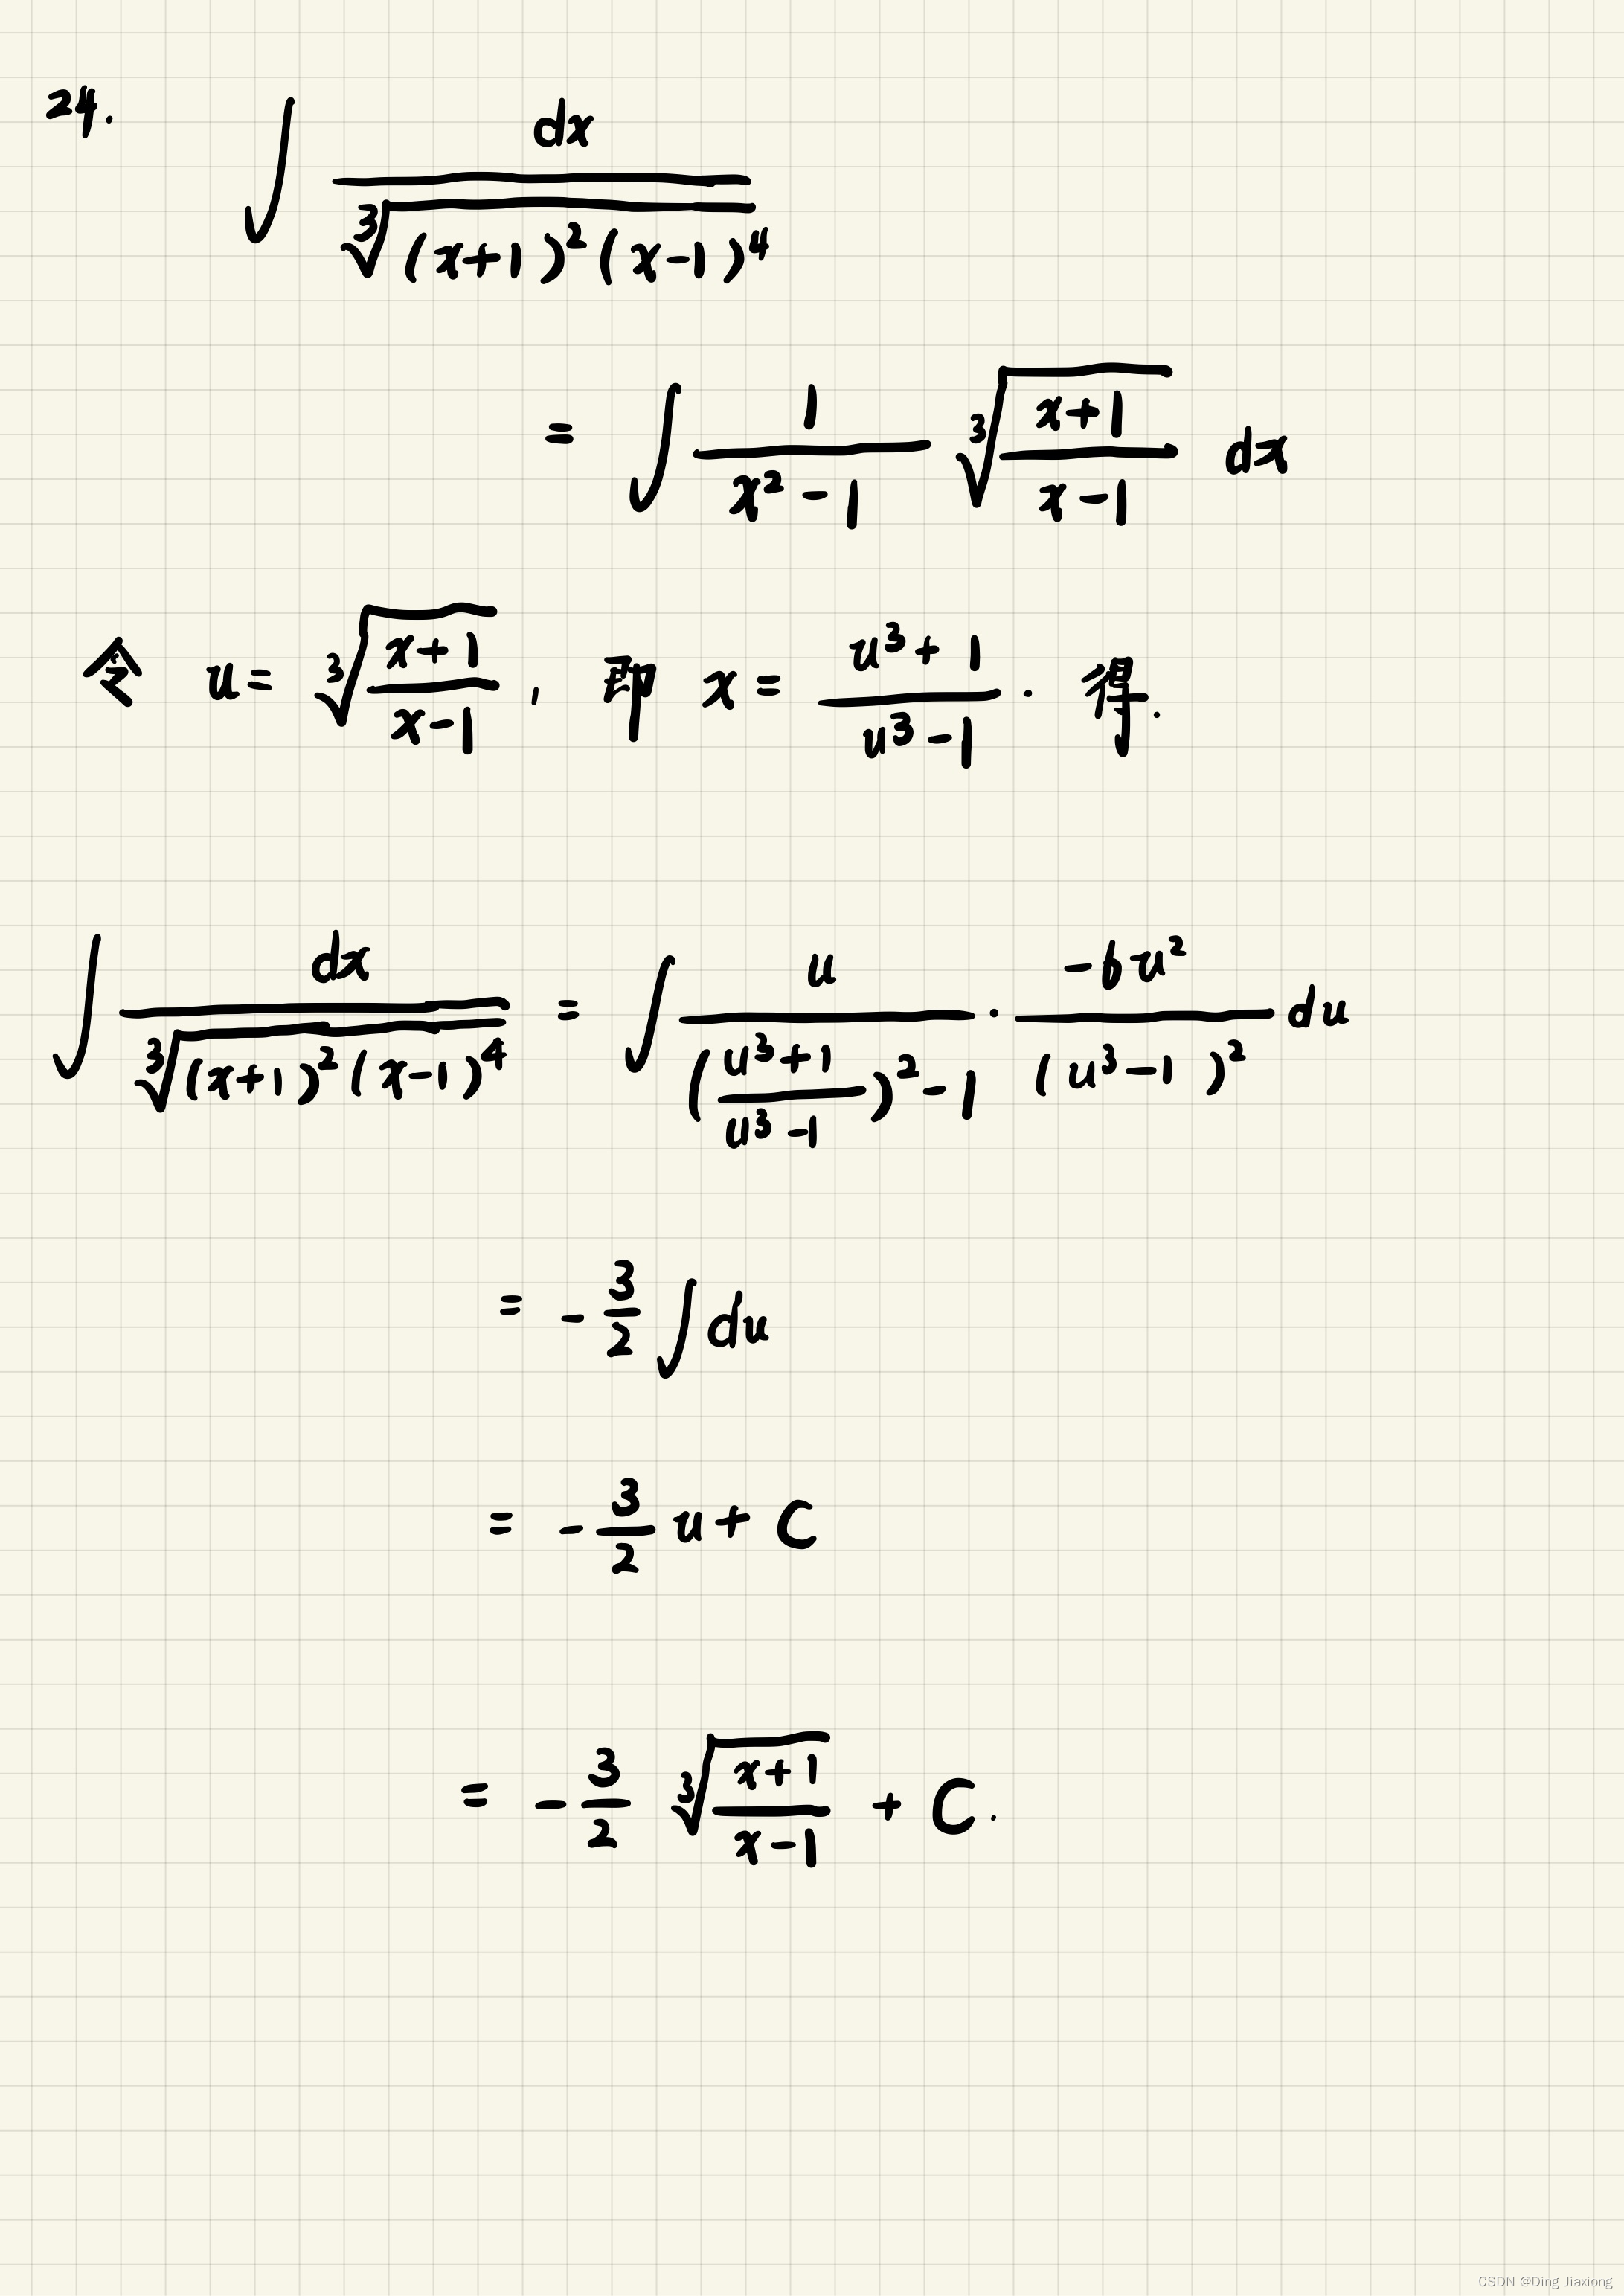 24. ∫ dx / ∛((x+1)²(x-1)⁴)
= ∫ 1/(x²-1) ∛((x+1)/(x-1)) dx
令 u= ∛((x+1)/(x-1)), 即 x= (u³+1)/(u³-1). 得.
∫ dx / ∛((x+1)²(x-1)⁴) = ∫ u / (((u³+1)/(u³-1))²-1) · (-6u²)/(u³-1)² du
= -3/2 ∫du
= -3/2 u+ C
= -3/2 ∛((x+1)/(x-1)) + C.
CSDN @Ding Jiaxiong